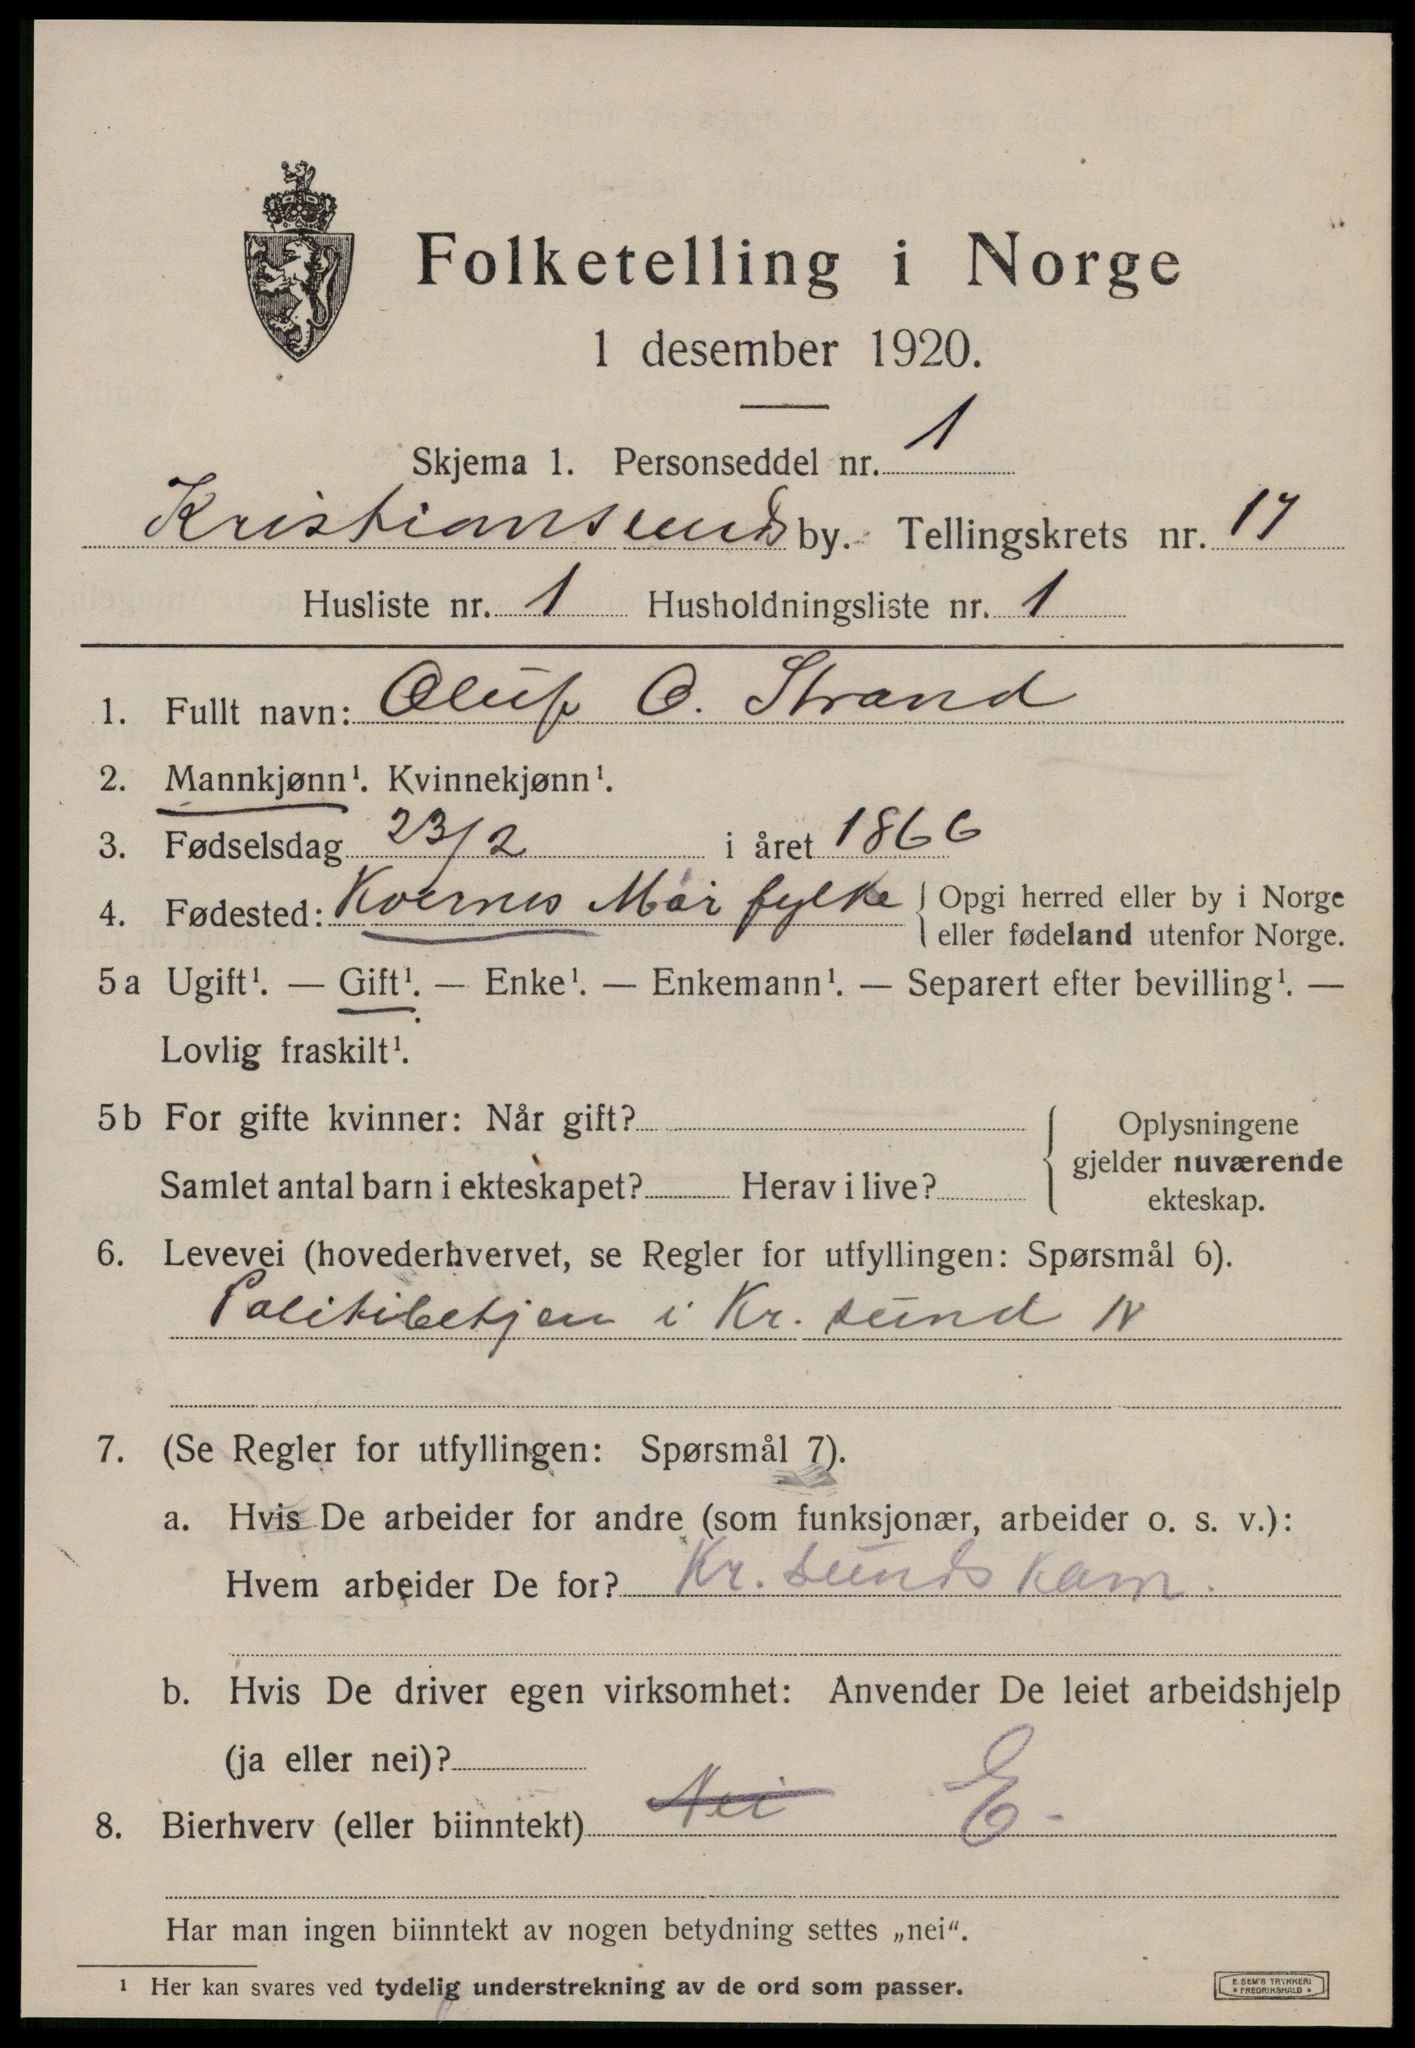 Folketelling i Norge
1 desember 1920.
Skjema 1. Personseddel nr. 1
Kristiansunds by. Tellingskrets nr. 17
Husliste nr. 1 Husholdningsliste nr. 1
1. Fullt navn: Oluf O. Strand
2. Mannkjønn¹. Kvinnekjønn¹.
3. Fødselsdag 23/2 i året 1866
4. Fødested: Kvernes Mør fylke { Opgi herred eller by i Norge
eller fødeland utenfor Norge.
5a Ugift¹. — Gift¹. — Enke¹. — Enkemann¹. — Separert efter bevilling¹. —
Lovlig fraskilt¹.
5b For gifte kvinner: Når gift?
Samlet antal barn i ekteskapet? Herav i live?
Oplysningene
gjelder nuværende
ekteskap.
6. Levevei (hovederhvervet, se Regler for utfyllingen: Spørsmål 6).
Politibetjen i Kr. sund N
7. (Se Regler for utfyllingen: Spørsmål 7).
a. Hvis De arbeider for andre (som funksjonær, arbeider o. s. v.):
Hvem arbeider De for? Kr. sunds Kom.
b. Hvis De driver egen virksomhet: Anvender De leiet arbeidshjelp
(ja eller nei)?
8. Bierhverv (eller biinntekt) Nei E-
Har man ingen biinntekt av nogen betydning settes „nei“.
¹ Her kan svares ved tydelig understrekning av de ord som passer.
E. SEM'S TRYKKERI
* FREDRIKSHALD *